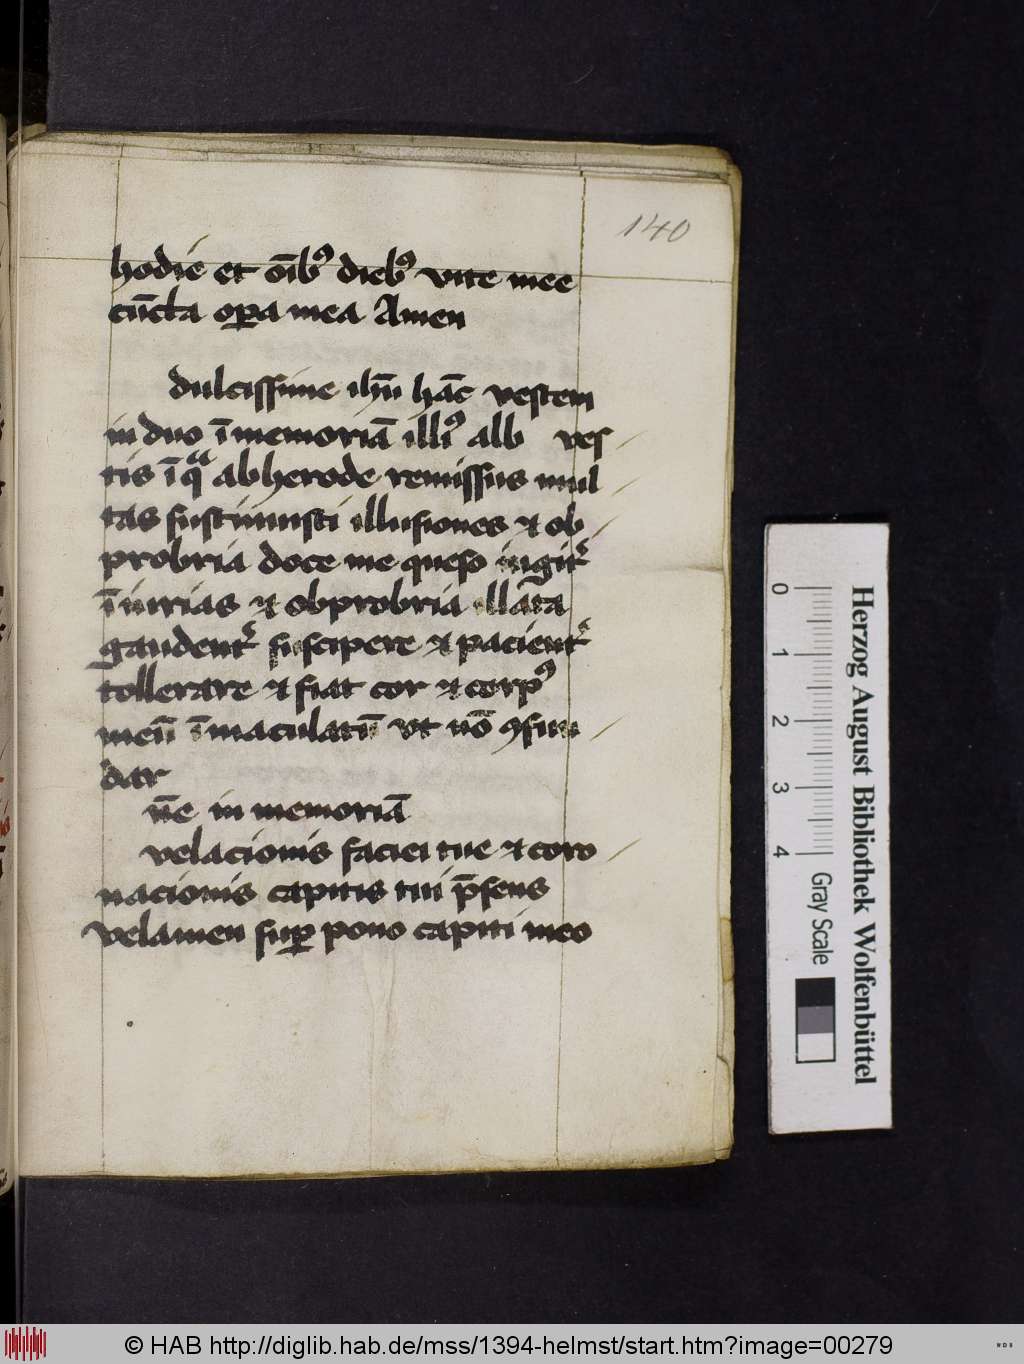 140
hodie et oı̄bꝰ diebꝰ vite mee
cūcta oꝑa mea Amen
dulcissime ihū hāc vestem
in duo ī memoriā illiꝰ alb ves
tis ī qᵃ ab herode remissus mul
tas sustinuisti illusiones ⁊ ob
probria doce me queso iugitˀ
īiurias ⁊ obprobria illata
gaudentˀ suscipere ⁊ pacientˀ
tollerare ⁊ fiat cor ⁊ corpꝰ
meū īmaculatū vt nō ꝯfun
dar
in memoriā
velacionis faciei tue ⁊ coro
nacionis capitis tui p̄sens
velamen suꝑ pono capiti meo
0 1 2 3 4
Gray Scale
Herzog August Bibliothek Wolfenbüttel
© HAB http://diglib.hab.de/mss/1394-helmst/start.htm?image=00279